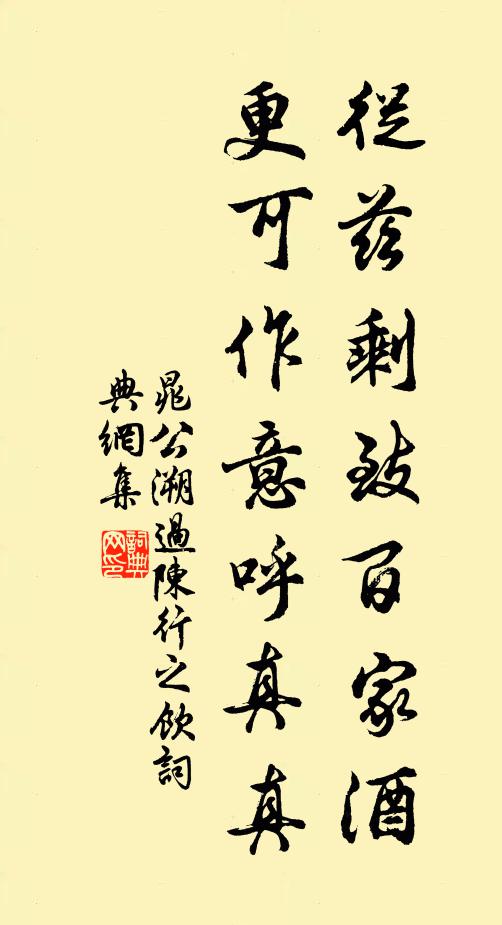 從茲剩致百家酒
更可作意呼真真
晁公溯過陳行之飲詞
典網集
詞典
网印